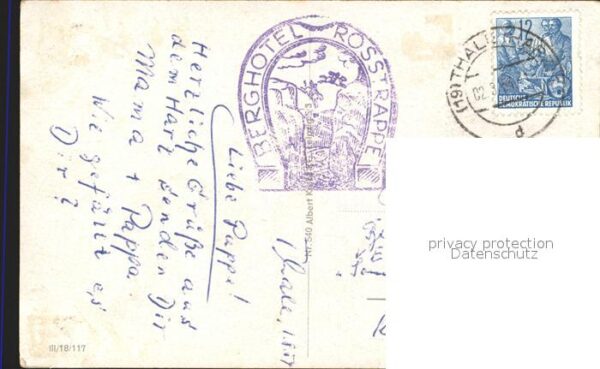 Liebe Puppe!
Herzliche Grüße aus
dem Harz senden Dir
Mama + Pappa.
Wie gefällt es
Dir?
Thale,
BERGHOTEL ROSSTRAPPE
(19) THALE
DEUTSCHE
DEMOKRATISCHE REPUBLIK
12
02
d
Nr. 540 Albert
III/18/117
privacy protection
Datenschutz